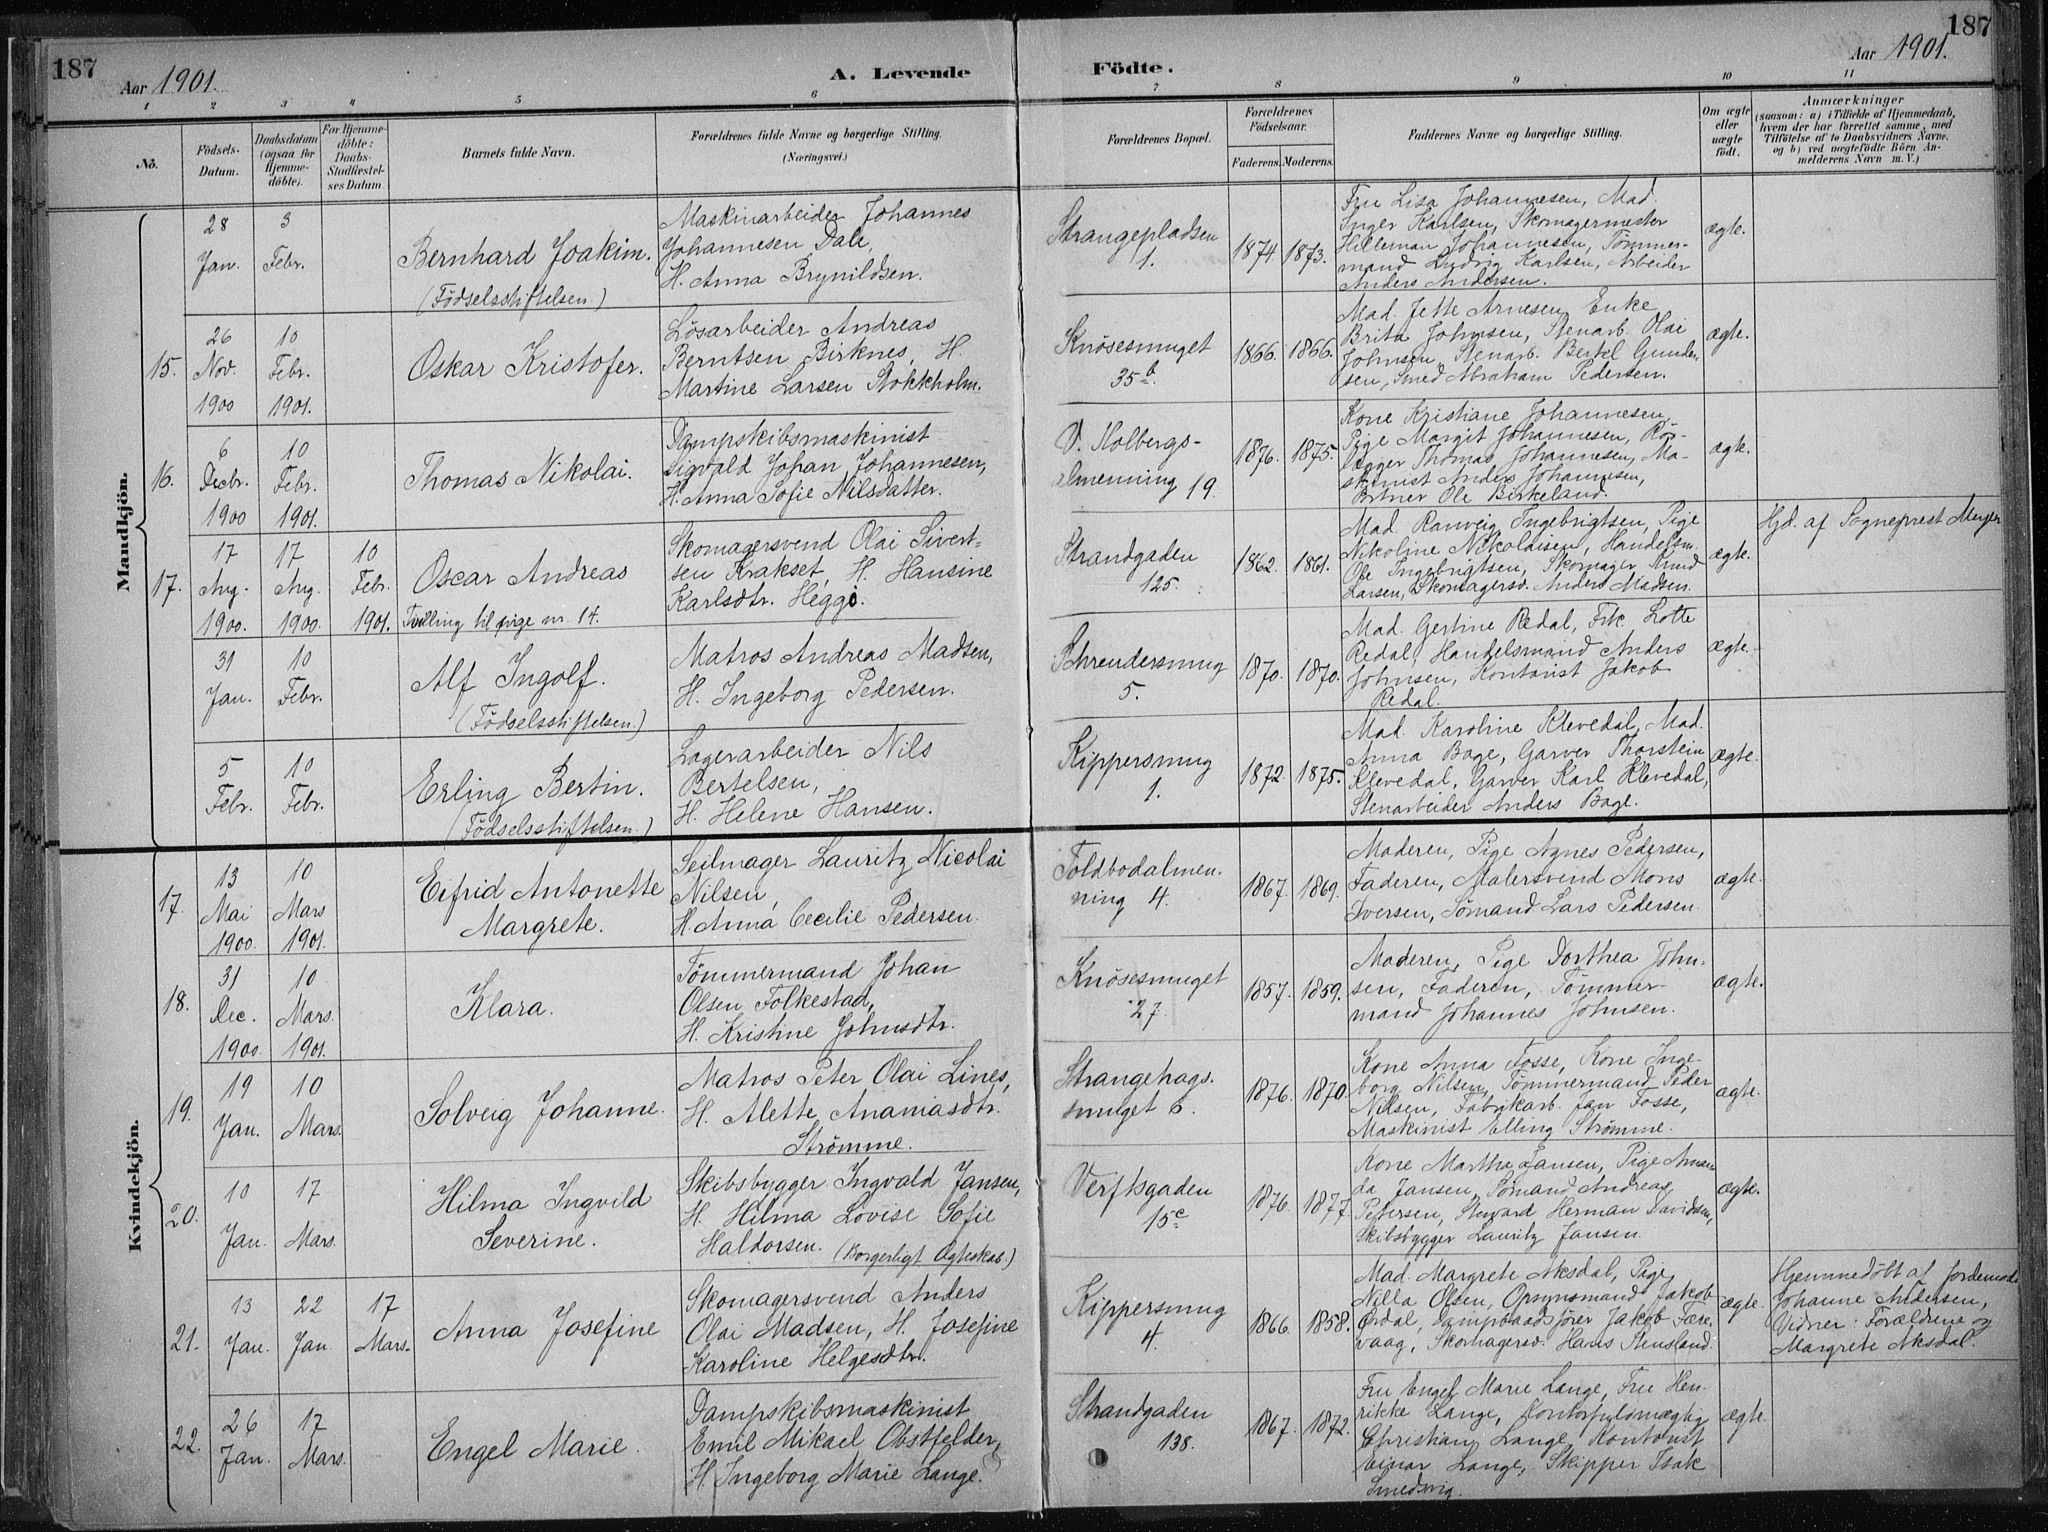 187
Aar 1901.
A. Levende
Födte.
Aar 1901.
187
1
2
3
4
5
6
7
8
9
10
11
No.
Födsels-
Datum.
Daabsdatum
(ogsaa for
Hjemme-
döbte).
For Hjemme-
döbte:
Daabs-
Stadfæstel-
ses Datum.
Barnets fulde Navn.
Forældrenes fulde Navne og borgerlige Stilling.
(Næringsvei.)
Forældrenes Bopæl.
Forældrenes
Födselsaar.
Faderens.
Moderens.
Faddernes Navne og borgerlige Stilling.
Om ægte
eller
uægte
födt.
Anmærkninger
(saasom: a) i Tilfælde af Hjemmedaab,
hvem der har forrettet samme, med
Tilföielse af to Daabsvidners Navne,
og b) ved uægtefödte Börn An-
melderens Navn m. V.)
Mandkjön.
28
Jan.
3
Febr.
Bernhard Joakim.
(Födselsstiftelsen.)
Maskinarbeider Johannes
Johannesen Dale,
H. Anna Brynildsen.
Strangepladsen
1.
1874.
1873.
Fru Lisa Johannesen, Mad.
Inger Karlsen, Skomagermester
Hilleman Johannesen, Tømmer-
mand Ludvig Karlsen, Arbeider
Anders Andersen.
ægte.
15.
26
Nov.
1900
10
Febr.
1901.
Oskar Kristofer.
Lösarbeider Andreas
Berntsen Birknes, H.
Martine Larsen Stokkholm.
Knösesmuget
35 b.
1866.
1866.
Mad. Jette Arnesen, Enke
Brita Johnsen, Stenarb. Olai
Johnsen, Stenarb. Bertel Gunder-
sen, Smed Abraham Pedersen.
ægte.
16.
6
Decbr.
1900
10
Febr.
1901.
Thomas Nikolai.
Dampskibsmaskinist
Sigvald Johan Johannesen,
H. Anna Sofie Nilsdatter.
V. Holbergs-
almenning 19.
1876.
1875.
Kone Kristiane Johannesen,
Pige Margit Johannesen, Rör-
lægger Thomas Johannesen, Ma-
skinist Anders Johannesen,
Ole Birkeland.
ægte.
17.
17
Aug.
1900.
17
Aug.
1900.
10
Febr.
1901.
Oscar Andreas
Tvilling til pige nr. 14.
Skomagersvend Olai Sivert-
sen Krakset, H. Hansine
Karlsdtr. Heggø.
Strandgaden
125.
1862.
1861.
Mad. Ranveig Ingebrigtsen, Pige
Nikoline Nikolaisen, Handelsm.
Ole Ingebrigtsen, Skomager Knud
Larsen, Skomagersv. Anders Madsen.
ægte.
Hjd. af Sogneprest Meyer
31
Jan.
10
Febr.
Alf Ingolf.
(Födselsstiftelsen.)
Matros Andreas Madsen,
H. Ingeborg Pedersen.
Schreudersmug
5.
1870.
1870.
Mad. Gertine Redal, Frk. Lotte
Redal, Handelsmand Anders
Johnsen, Kontorist Jakob
Redal.
ægte.
5
Febr.
10
Febr.
Erling Bertin.
(Födselsstiftelsen.)
Lagerarbeider Nils
Bertelsen,
H. Helene Hansen.
Kippersmug
1.
1872
1875.
Mad. Karoline Klevedal, Mad.
Anna Bage, Garver Thorstein
Klevedal, Garver Karl Klevedal,
Stenarbeider Anders Bage.
ægte.
Kvindekjön.
17.
13
Mai
1900.
10
Mars
1901.
Eifrid Antonette
Margrete.
Seilmager Lauritz Nicolai
Nilsen,
H. Anna Cecilie Pedersen.
Toldbodalmen-
ning 4.
1867.
1869.
Moderen, Pige Agnes Pedersen,
Faderen, Malersvend Mons
Iversen, Sömand Lars Pedersen.
ægte.
18.
31
Dec.
1900.
10
Mars.
1901.
Klara.
Tömmermand Johan
Olsen Folkestad,
H. Kristine Johnsdtr.
Knösesmuget
27.
1857.
1859.
Moderen, Pige Dorthea John-
sen, Faderen, Tömmer-
mand Johannes Johnsen.
ægte.
19.
19
Jan.
10
Mars.
Solveig Johanne.
Matros Peter Olai Lines,
H. Alette Ananiasdtr.
Strømme.
Strangehags-
smuget 6.
1876.
1870.
Kone Anna Fosse, Kone Inge-
borg Nilsen, Tømmermand Peder
Nilsen, Fabrikarb. Jan Fosse,
Maskinist Elling Strømme.
ægte.
20.
10
Jan.
17
Mars.
Hilma Ingvild
Severine.
Skibsbygger Ingvald Jansen,
H. Hilma Lovise Sofie
Haldorsen. (Borgerligt Ægteskab.)
Verftsgaden
15 c
1876.
1877.
Kone Martha Jansen, Pige Aman-
da Jansen, Sömand Andreas
Petersen, Steward Herman Davidsen,
Skibsbygger Lauritz Jansen.
ægte.
21.
13
Jan.
22
Jan.
17
Mars.
Anna Josefine
Skomagersvend Anders
Olai Madsen, H. Josefine
Karoline Helgesdtr.
Kippersmug
4.
1866.
1858.
Mad. Margrete Aksdal, Pige
Nilla Olsen, Opsynsmand Jakob
Dampbaadsfører Jakob Fære-
vaag, Skomagersv. Hans Stensland.
ægte.
Hjemmedöbt af Jordemoder
Johanne Andersen,
Vidner: Forældrene og
Margrete Aksdal.
22.
26
Jan.
17
Mars.
Engel Marie.
Dampskibsmaskinist
Emil Mikael Obstfelder,
H. Ingeborg Marie Lange.
Strandgaden
138.
1867.
1872.
Fru Engel Marie Lange, Fru Hen-
rikke Lange, Kontorfuldmægtig
Christian Lange, Kontorist
Einar Lange, Skipper Isak
Smedsvig.
ægte.